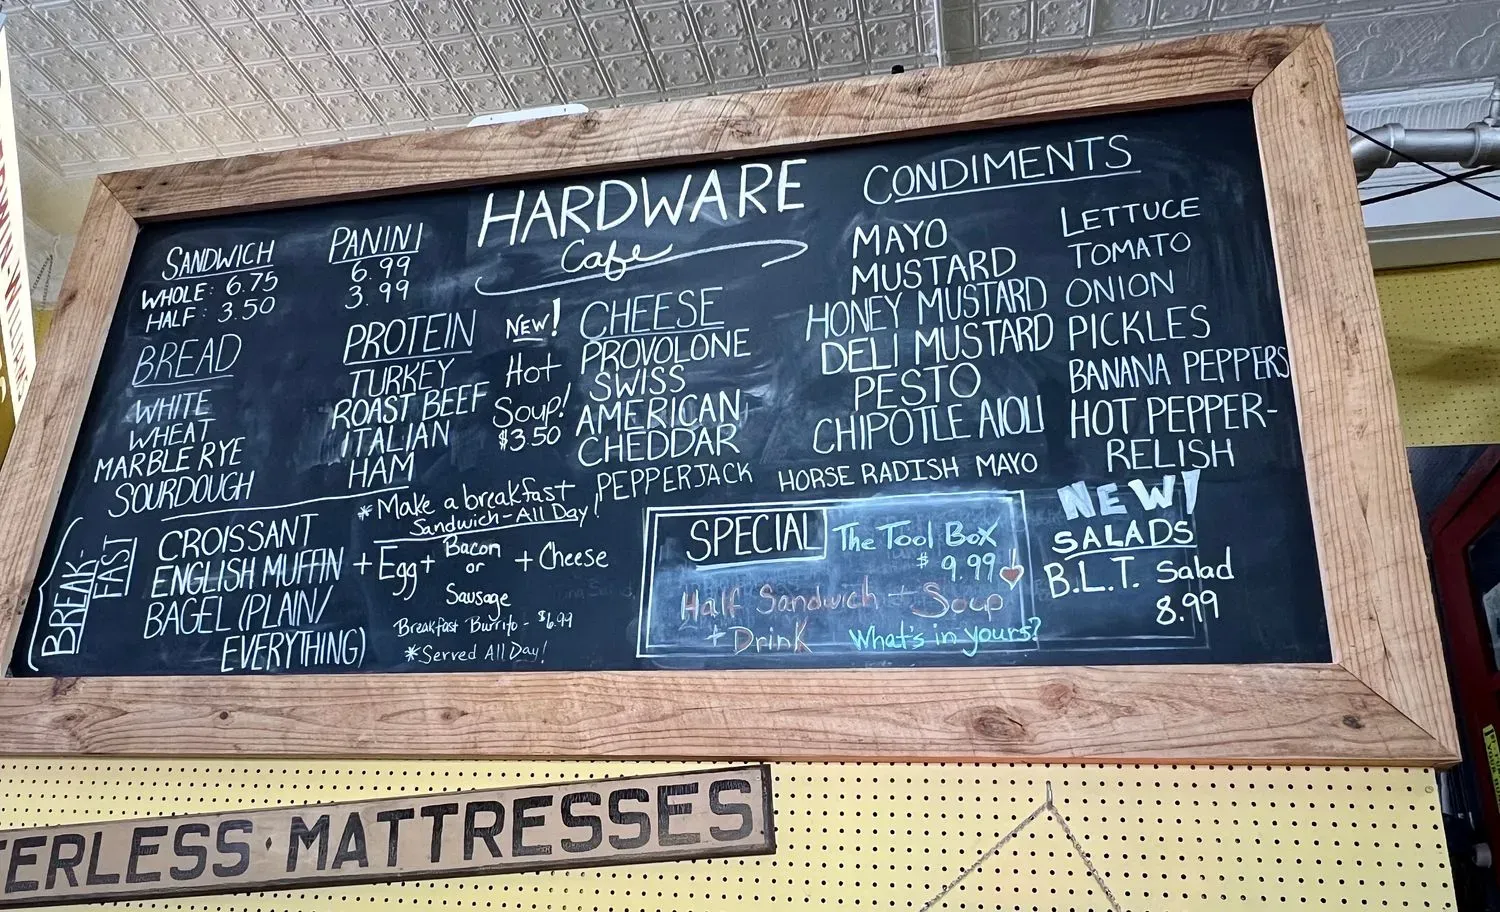 HARDWARE
Cafe
SANDWICH
WHOLE: 6.75
HALF: 3.50
PANINI
6.99
3.99
BREAD
WHITE
WHEAT
MARBLE RYE
SOURDOUGH
PROTEIN
TURKEY
ROAST BEEF
ITALIAN
HAM
NEW!
Hot
Soup!
$3.50
CHEESE
PROVOLONE
SWISS
AMERICAN
CHEDDAR
PEPPERJACK
CONDIMENTS
MAYO
MUSTARD
HONEY MUSTARD
DELI MUSTARD
PESTO
CHIPOTLE AIOLI
HORSE RADISH MAYO
LETTUCE
TOMATO
ONION
PICKLES
BANANA PEPPERS
HOT PEPPER-
RELISH
*Make a breakfast
Sandwich-All Day!
BREAK-
FAST
CROISSANT
ENGLISH MUFFIN
BAGEL (PLAIN/
EVERYTHING)
+ Egg + Bacon
or
Sausage
+ Cheese
Breakfast Burrito - $6.99
*Served All Day!
SPECIAL The Tool Box
$9.99
Half Sandwich + Soup
+ Drink What's in yours?
NEW!
SALADS
B.L.T. Salad
8.99
ERLESS · MATTRESSES